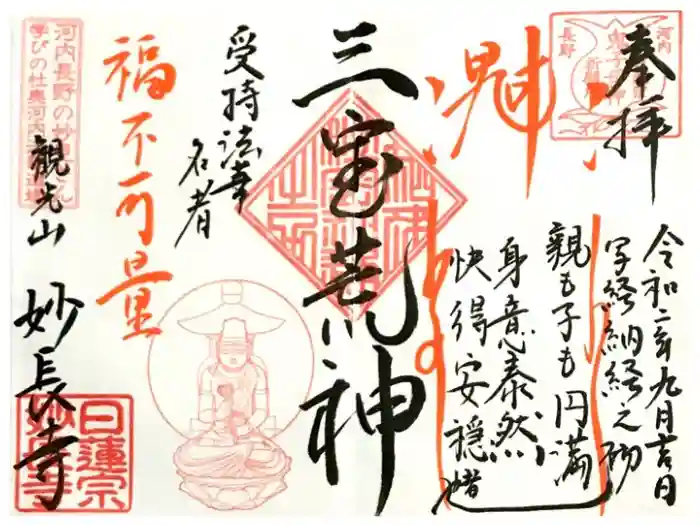 奉拝
令和二年九月吉日
写経納経之砌
親も子も円満
身意泰然
快得安穏
三宝荒神
受持法華
名者
福不可量
観光山
妙長寺
河内
長野
日蓮宗
妙長寺